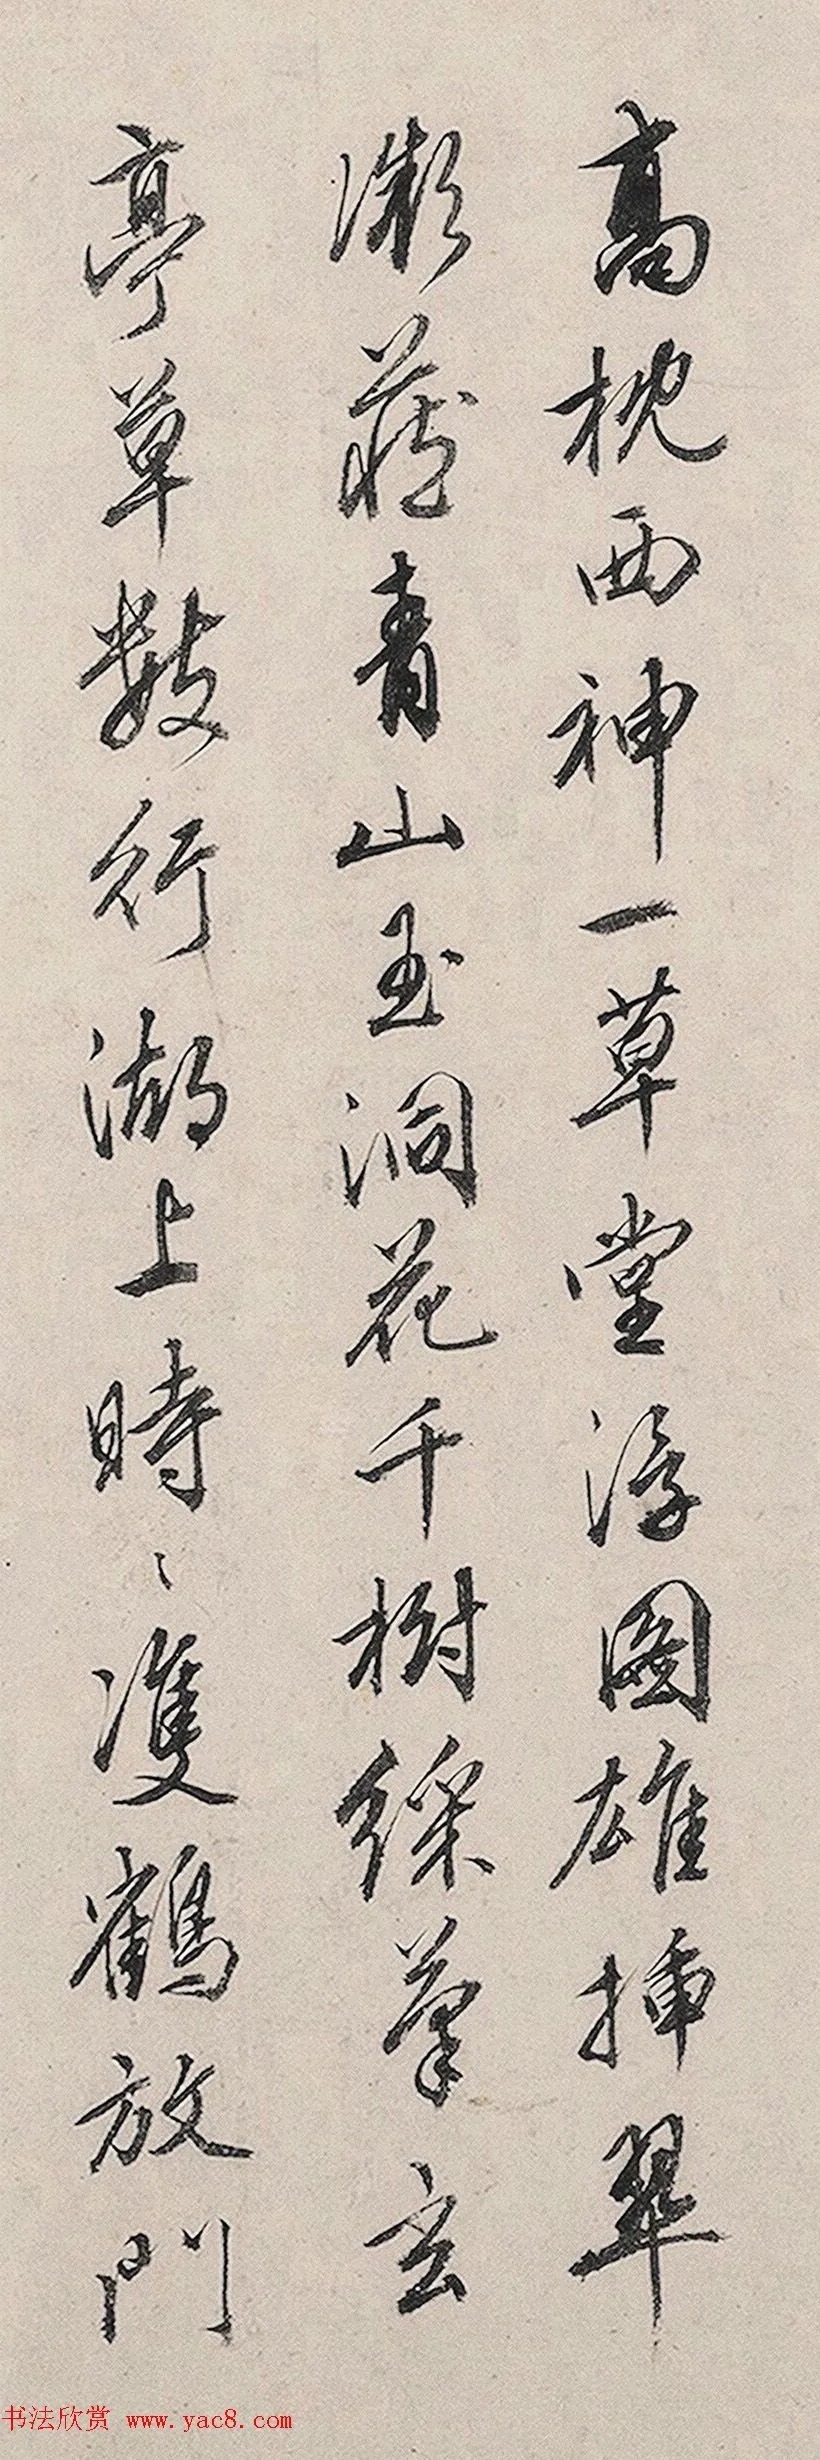 高枕西神一草堂浮圖雄插翠
微蔵青山玉洞花千樹綵筆玄
亭草數行湖上時〻隻鶴放門
书法欣赏 www.yac8.com